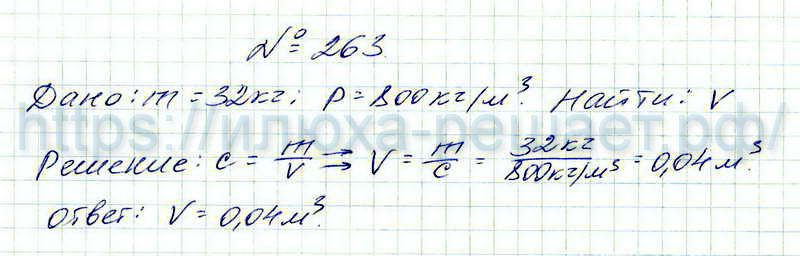 № 263.
Дано: m = 32кг; ρ = 800кг/м³. Найти: V
https://плюха-решает.рф/
Решение: c = m/V ⇒ V = m/c = 32кг/800кг/м³ = 0,04м³.
ответ: V = 0,04м³.